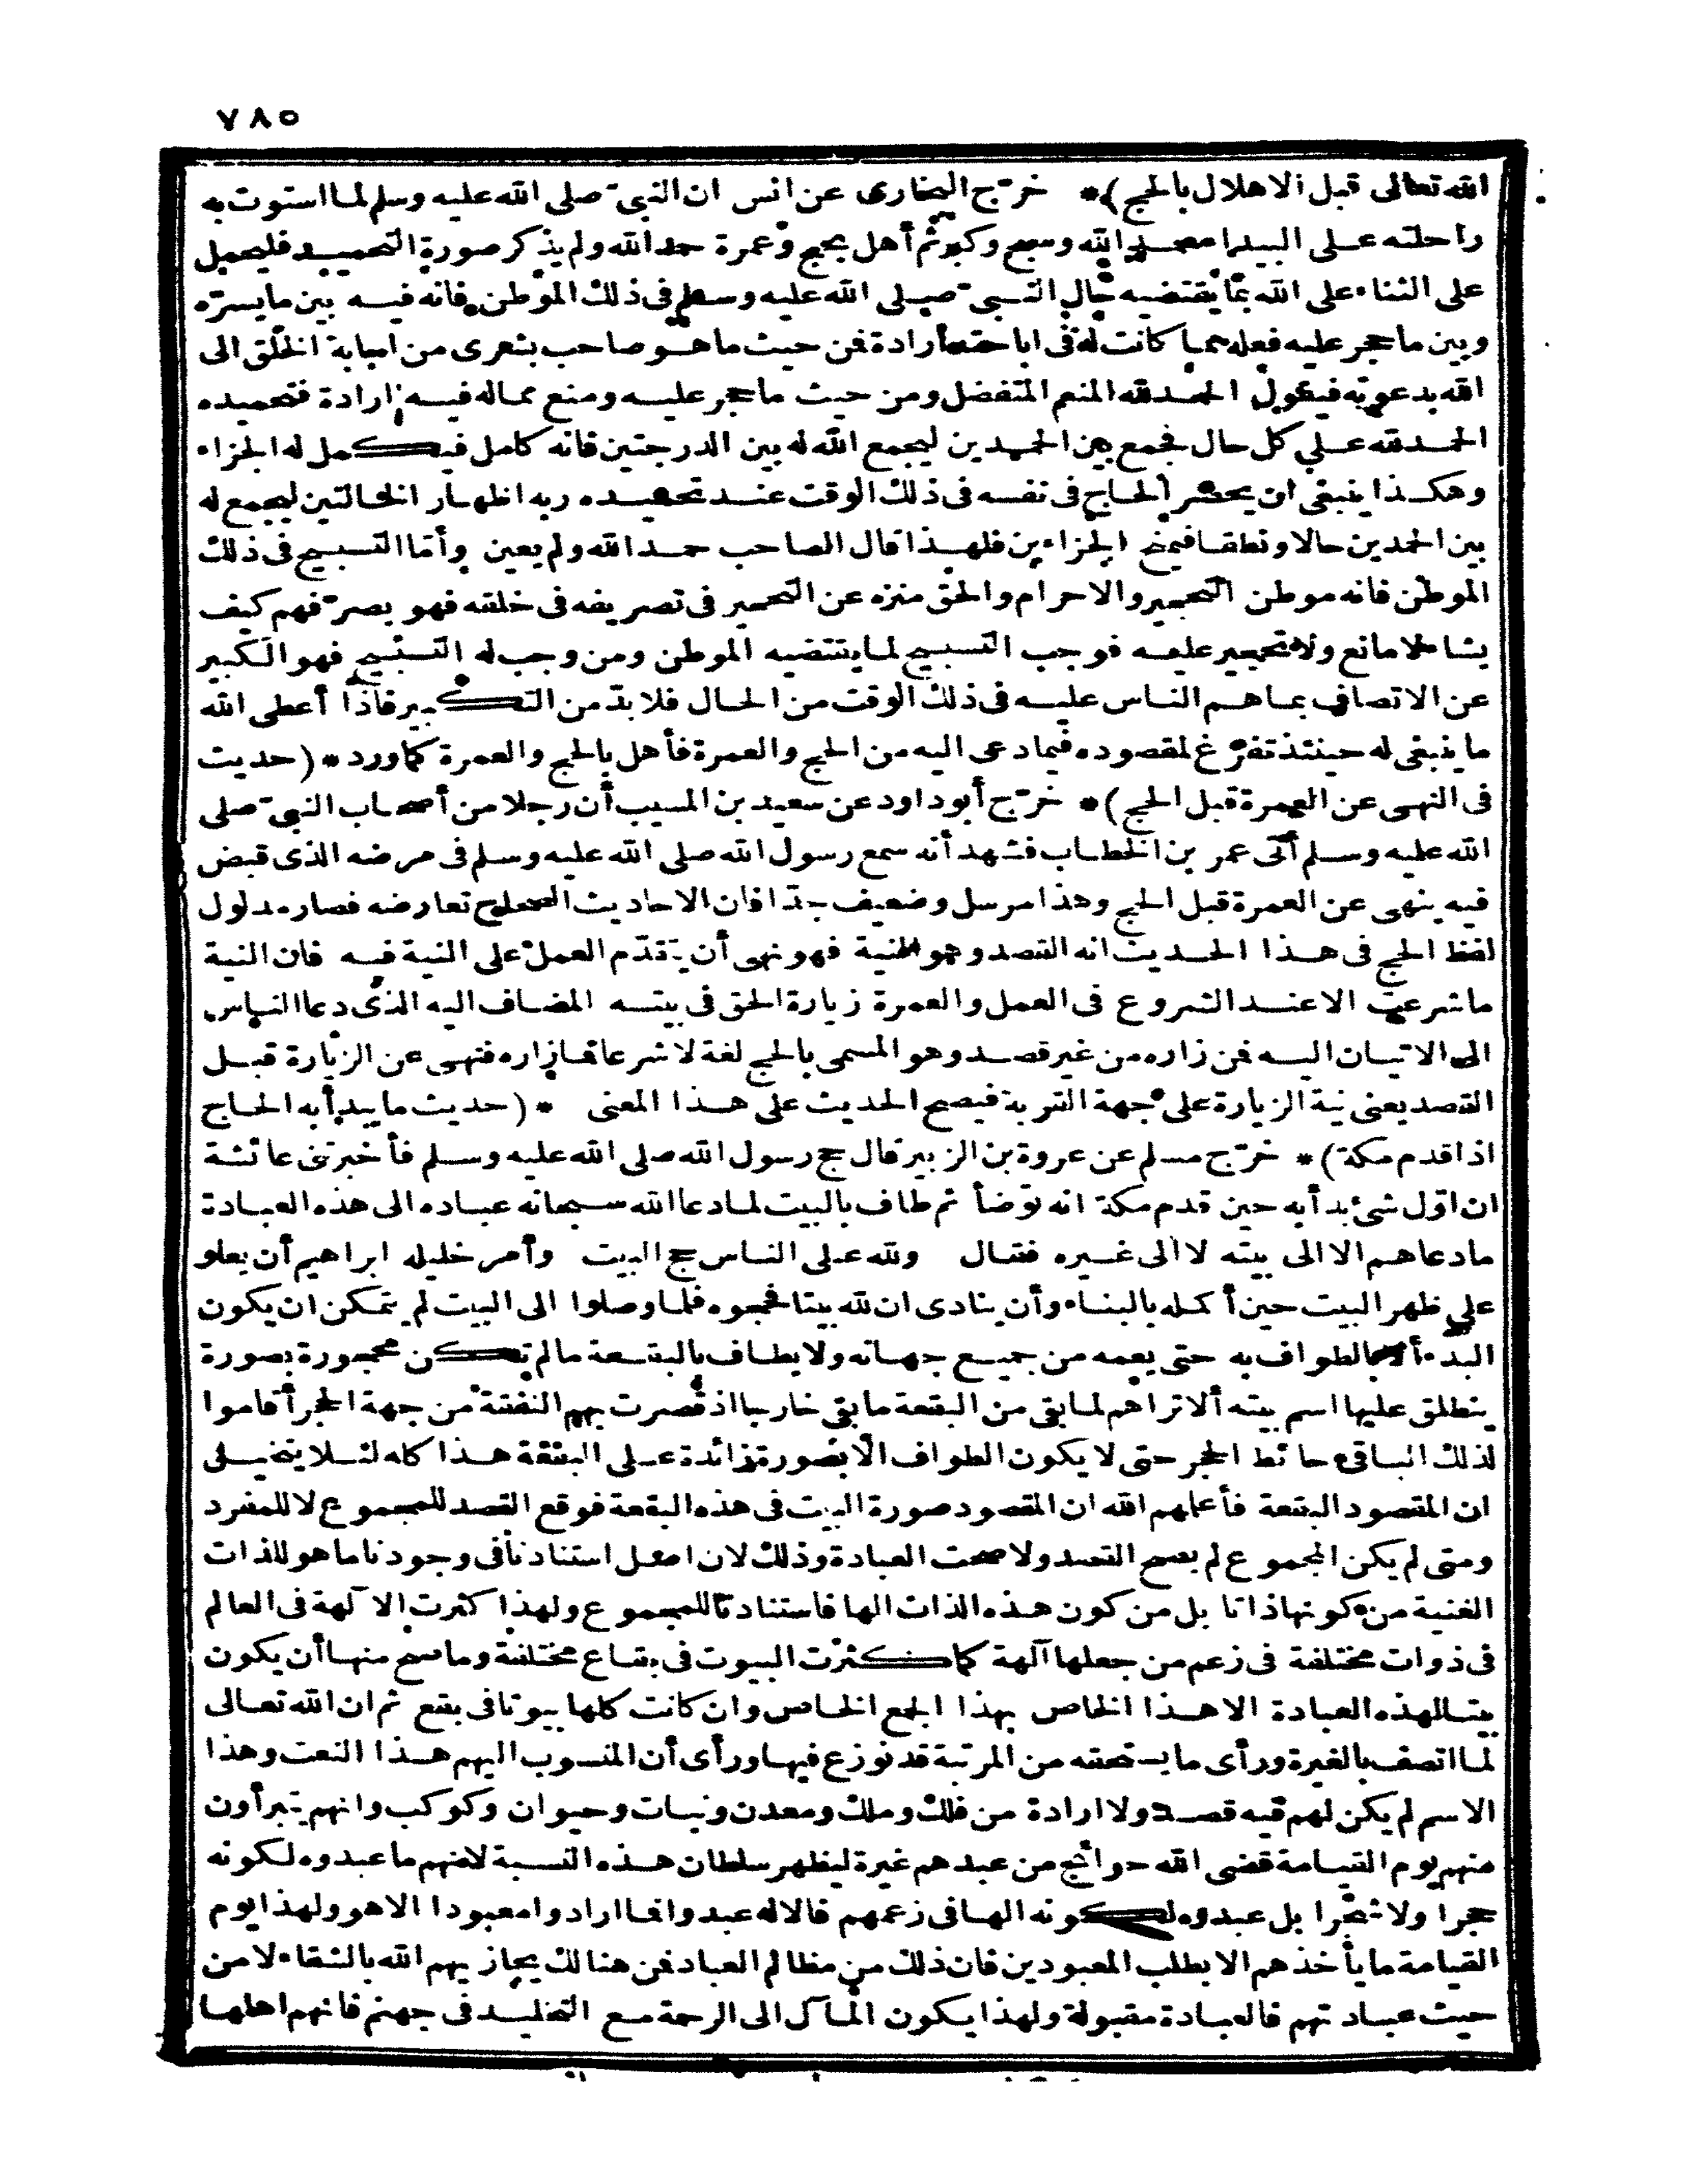 ٧٨٥
الله تعالى قبل الاهلال بالحج)* خرّج البخارى عن انس ان النبىّ صلى الله عليه وسلم لما استوت به
راحلته على البيدا حمد الله وسبح وكبر ثم أهل بحج وعمرة حمد الله ولم يذكر صورة التحميد فليحمل
على الثناء على الله بما يقتضيه حال النبىّ صلى الله عليه وسلم فى ذلك الموطن فانه فيه بين ما يسرّه
وبين ما حجر عليه فعله مما كانت له فى اباحته ارادة فمن حيث ما هو صاحب بشرى من اجابة الخلق الى
الله بدعوته فيقول الحمد لله المنعم المتفضل ومن حيث ما حجر عليه ومنع مماله فيه ارادة فتحميده
الحمد لله على كل حال فجمع بين الحمدين ليجمع الله له بين الدرجتين فانه كامل فيكمل له الجزاء
وهكذا ينبغى ان يحضر الحاج فى نفسه فى ذلك الوقت عند تحميده ربه اظهار الحالتين ليجمع له
بين الحمدين حالا ونطقا فيمنح الجزاءين فلهذا قال الصاحب حمد الله ولم يعين وأمّا التسبيح فى ذلك
الموطن فانه موطن التحجير والاحرام والحق منزه عن التحجير فى تصريفه فى خلقه فهو يصرّفهم كيف
يشا لا مانع ولا تحجير عليه فوجب التسبيح لما يقتضيه الموطن ومن وجب له التسبيح فهو الكبير
عن الاتصاف بما هم الناس عليه فى ذلك الوقت من الحال فلا بدّ من التكبير فاذا أعطى الله
ما ينبغى له حينئذ تفرّغ لمقصوده فيما دعى اليه من الحج والعمرة فأهل بالحج والعمرة كما ورد *(حديث
فى النهى عن العمرة قبل الحج)* خرّج أبو داود عن سعيد بن المسيب أن رجلا من أصحاب النبىّ صلى
الله عليه وسلم أتى عمر بن الخطاب فشهد أنه سمع رسول الله صلى الله عليه وسلم فى مرضه الذى قبض
فيه ينهى عن العمرة قبل الحج وهذا مرسل وضعيف جدّا فان الاحاديث الصحاح تعارضه فصار مدلول
لفظ الحج فى هذا الحديث انه القصد وهو النية فهو نهى أن يتقدّم العمل على النية فيه فان النية
ما شرعت الا عند الشروع فى العمل والعمرة زيارة الحق فى بيته المضاف اليه الذى دعا الناس
الى الاتيان اليه فمن زاره من غير قصد وهو المسمى بالحج لغة لا شرعا فما زاره فنهى عن الزيارة قبل
القصد يعنى نية الزيارة على جهة القربة فيصح الحديث على هذا المعنى *(حديث ما يبدأ به الحاج
اذا قدم مكة)* خرّج مسلم عن عروة بن الزبير قال حج رسول الله صلى الله عليه وسلم فأخبرتنى عائشة
ان اوّل شئ بدأ به حين قدم مكة انه توضأ ثم طاف بالبيت لما دعا الله سبحانه عباده الى هذه العبادة
ما دعاهم الا الى بيته لا الى غيره فقال ولله على الناس حج البيت وأمر خليله ابراهيم أن يعلو
على ظهر البيت حين أكمله بالبناء وأن ينادى ان لله بيتا فحجوه فلما وصلوا الى البيت لم يتمكن ان يكون
البدء الا بالطواف به حتى يعمه من جميع جهاته ولا يطاف بالبقعة ما لم تكن محجورة بصورة
ينطلق عليها اسم بيته ألا تراهم لما بقى من البقعة ما بقى خارجا اذ قصرت بهم النفقة من جهة الحجر أقاموا
لذلك الباقى حائط الحجر حتى لا يكون الطواف الا بصورة زائدة على البقعة هذا كله لئلا يتخيلى
ان المقصود البقعة فأعلهم الله ان المقصود صورة البيت فى هذه البقعة فوقع القصد للمجموع لا للمفرد
ومتى لم يكن المجموع لم يصح القصد ولا صحت العبادة وذلك لان اصل استنادنا فى وجودنا ما هو للذات
الغنية من كونها ذاتا بل من كون هذه الذات الها فاستنادنا للمجموع ولهذا كثرت الآلهة فى العالم
فى ذوات مختلفة فى زعم من جعلها آلهة كما كثرت البيوت فى بقاع مختلفة وما صح منها أن يكون
بيتا لهذه العبادة الا هذا الخاص بهذا الجمع الخاص وان كانت كلها بيوتا فى بقع ثم ان الله تعالى
لما اتصف بالغيرة ورأى ما يستحقه من المرتبة قد نوزع فيها ورأى أن المنسوب اليهم هذا النعت وهذا
الاسم لم يكن لهم فيه قصد ولا ارادة من فلك وملك ومعدن ونبات وحيوان وكوكب وانهم يتبرأون
منهم يوم القيامة قضى الله حوائج من عبدهم غيرة ليظهر سلطان هذه النسبة لانهم ما عبدوه لكونه
حجرا ولا شجرا بل عبدوه لكونه الها فى زعمهم فالاله عبدوا فما ارادوا معبودا الا هو ولهذا يوم
القيامة ما يأخذهم الا بطلب المعبودين فان ذلك من مظالم العباد فمن هنالك يجازيهم الله بالشقاء لا من
حيث عبادتهم فالعبادة مقبولة ولهذا يكون المآل الى الرحمة مع التخليد فى جهنم فانهم اهلها